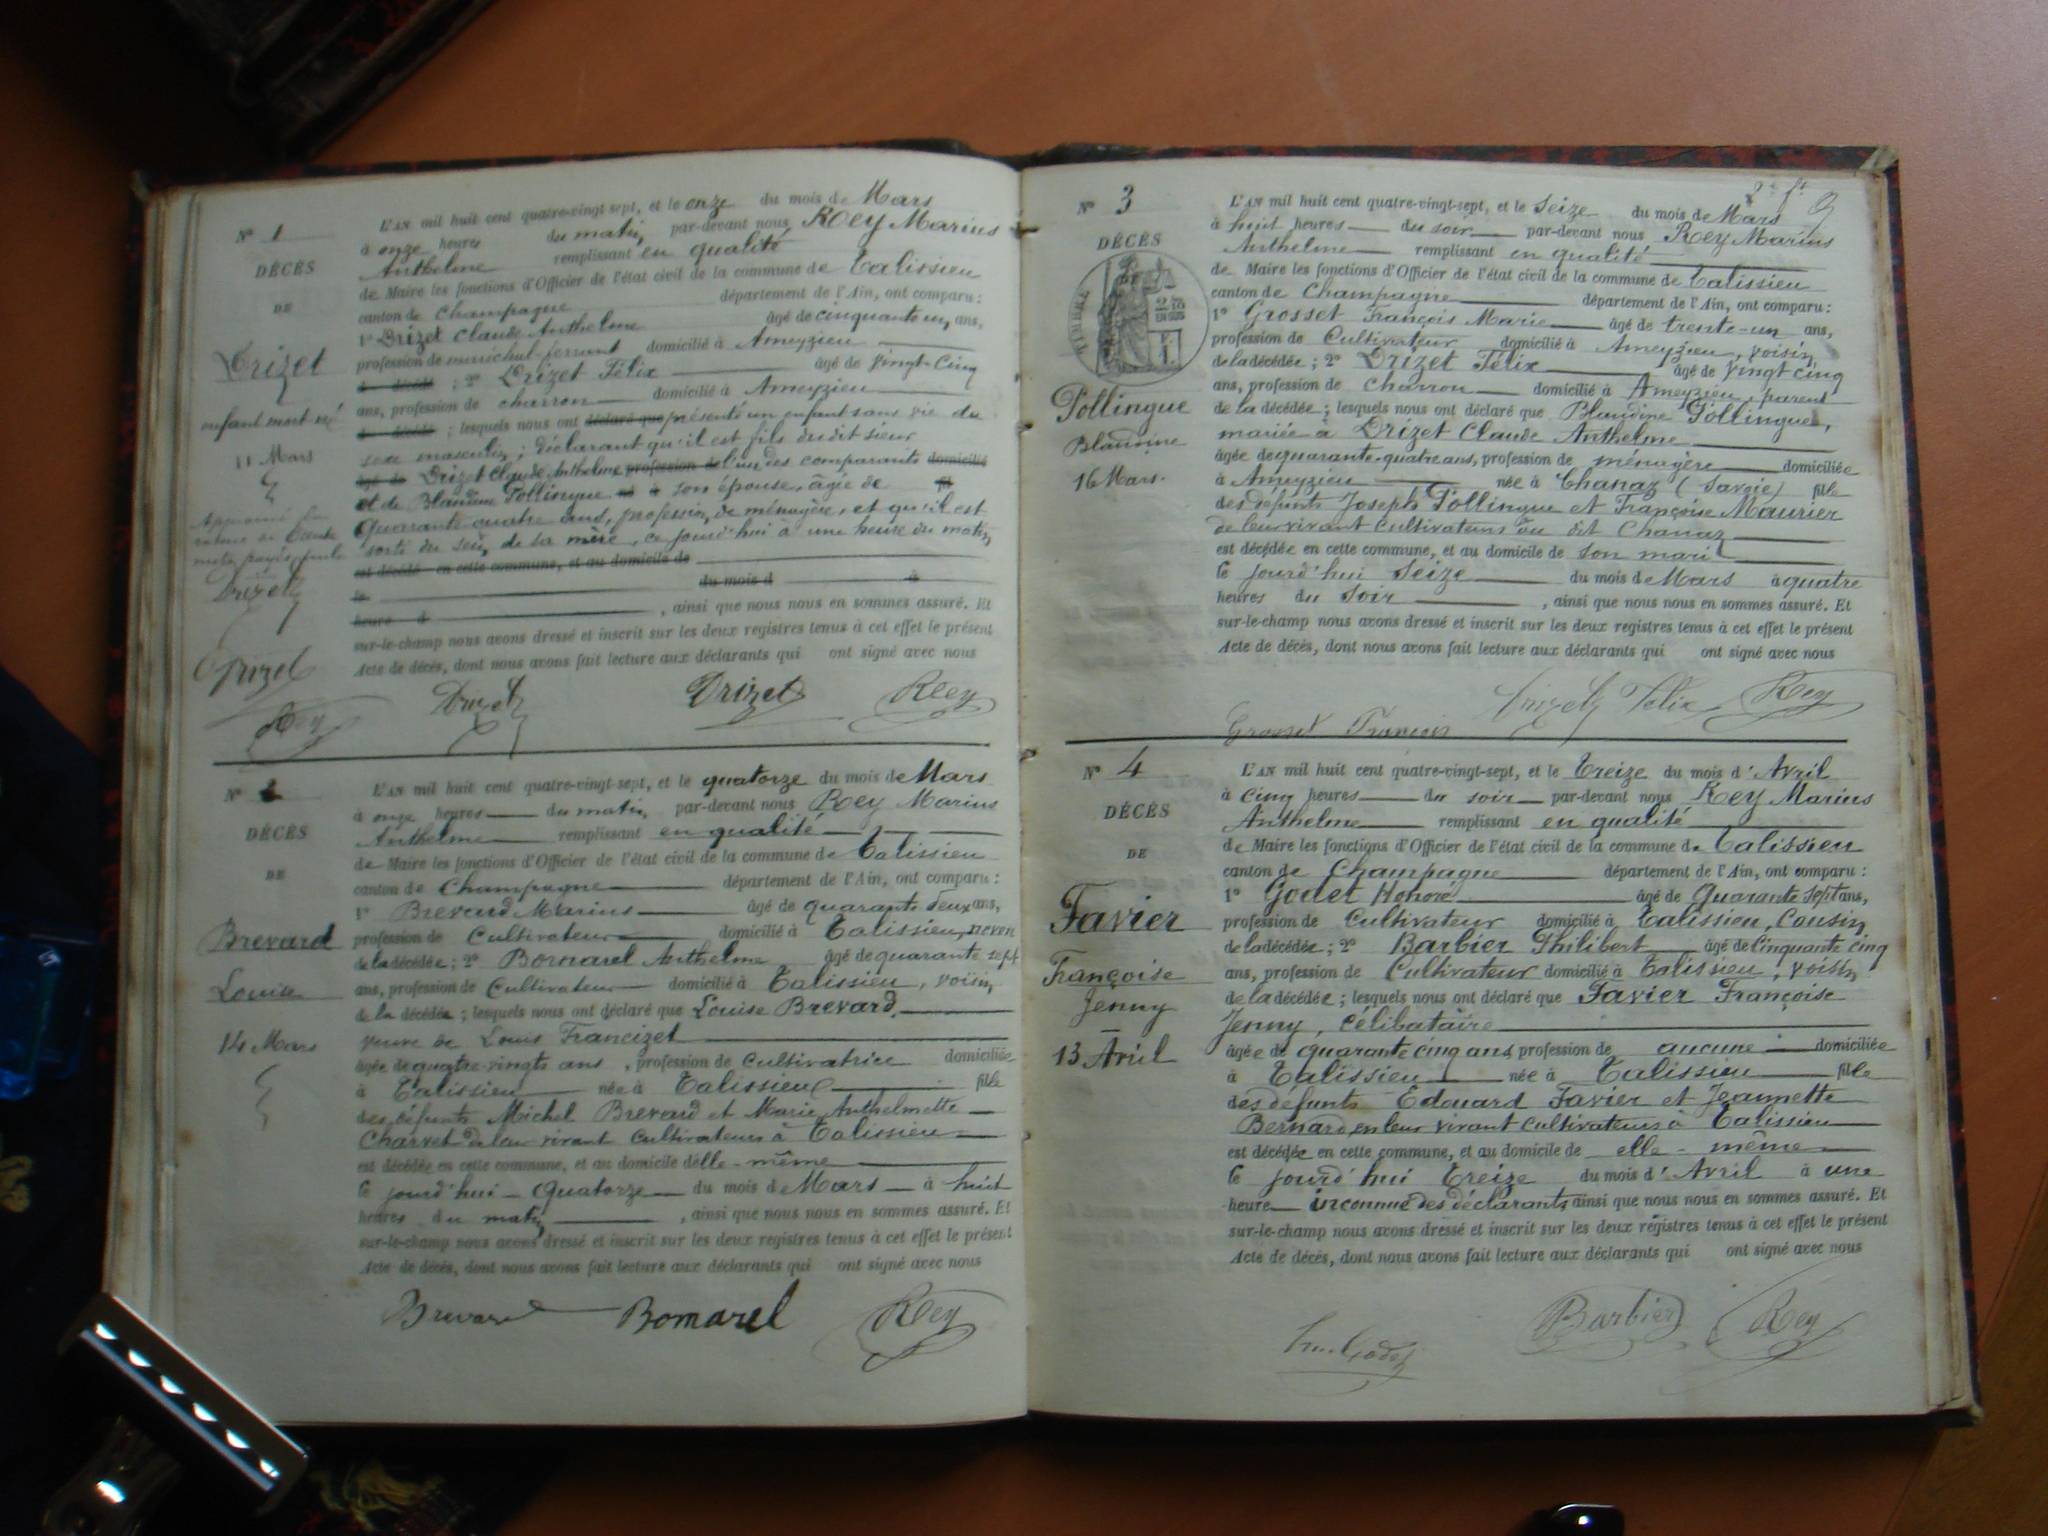 Nº 1
DÉCÈS
DE
Drizet
enfant mort né
11 Mars
Drizet
L'AN mil huit cent quatre-vingt-sept, et le onze du mois de Mars
à onze heures du matin, par-devant nous, Rey Marius
Anthelme remplissant en qualité
de Maire les fonctions d'Officier de l'état civil de la commune de Talissieu
canton de Champagne département de l'Ain, ont comparu :
1º Drizet Claude Anthelme âgé de cinquante un, ans,
profession de maréchal-ferrant domicilié à Ameyzieu
d décédé ; 2º Drizet Félix âgé de vingt-cinq
ans, profession de charron domicilié à Ameyzieu
d décédé ; lesquels nous ont déclaré que présenté un enfant sans vie du
sexe masculin ; déclarant qu'il est fils dudit sieur
âgé de Drizet Claude Anthelme, profession de l'un des comparants domicilié
et de Blandine Pollingue né à son épouse, âgée de fil
quarante-quatre ans, profession, de ménagère, et qu'il est
sorti du sein, de sa mère, ce jourd'hui à une heure du matin,
est décédé en cette commune, et au domicile de
le du mois d à
heure d , ainsi que nous nous en sommes assuré. Et
sur-le-champ nous avons dressé et inscrit sur les deux registres tenus à cet effet le présent
Acte de décès, dont nous avons fait lecture aux déclarants qui ont signé avec nous
Drizet
Rey
Drizet Drizet Rey
Nº 2
DÉCÈS
DE
Brevard
Louise
14 Mars
L'AN mil huit cent quatre-vingt-sept, et le quatorze du mois de Mars
à onze heures du matin, par-devant nous Rey Marius
Anthelme remplissant en qualité
de Maire les fonctions d'Officier de l'état civil de la commune de Talissieu
canton de Champagne département de l'Ain, ont comparu :
1º Brevard Marius âgé de quarante deux ans,
profession de Cultivateur domicilié à Talissieu, neveu
de la décédée ; 2º Bornarel Anthelme âgé de quarante sept
ans, profession de Cultivateur domicilié à Talissieu, voisin,
de la décédée ; lesquels nous ont déclaré que Louise Brevard,
veuve de Louis Francizet
âgée de quatre-vingts ans, profession de Cultivatrice domiciliée
à Talissieu née à Talissieu fille
des défunts Michel Brevard et Marie Anthelmette
Charvet de leur vivant Cultivateurs à Talissieu
est décédée en cette commune, et au domicile delle-même
le jourd'hui Quatorze du mois de Mars à huit
heures du matin, , ainsi que nous nous en sommes assuré. Et
sur-le-champ nous avons dressé et inscrit sur les deux registres tenus à cet effet le présent
Acte de décès, dont nous avons fait lecture aux déclarants qui ont signé avec nous
Brevard Bornarel Rey
Nº 3
DÉCÈS
TIMBRE
Pollingue
Blandine
16 Mars.
L'AN mil huit cent quatre-vingt-sept, et le Seize du mois de Mars
à huit heures du soir par-devant nous Rey Marius
Anthelme remplissant en qualité
de Maire les fonctions d'Officier de l'état civil de la commune de Talissieu
canton de Champagne département de l'Ain, ont comparu :
1º Grosset François Marie âgé de trente-un ans,
profession de Cultivateur domicilié à Ameyzieu, voisin,
de la décédée ; 2º Drizet Félix âgé de vingt cinq
ans, profession de charron domicilié à Ameyzieu, parent
de la décédée ; lesquels nous ont déclaré que Blandine Pollingue,
mariée à Drizet Claude Anthelme
âgée de quarante-quatre ans, profession de ménagère domiciliée
à Ameyzieu née à Chanaz (Savoie) fille
des défunts Joseph Pollingue et Françoise Maurier
de leur vivant Cultivateurs au dit Chanaz
est décédée en cette commune, et au domicile de son mari
le jourd'hui Seize du mois de Mars à quatre
heures du soir , ainsi que nous nous en sommes assuré. Et
sur-le-champ nous avons dressé et inscrit sur les deux registres tenus à cet effet le présent
Acte de décès, dont nous avons fait lecture aux déclarants qui ont signé avec nous
Grosset François Drizet Félix Rey
Nº 4
DÉCÈS
DE
Favier
Françoise
Jenny
13 Avril
L'AN mil huit cent quatre-vingt-sept, et le Treize du mois d'Avril
à cinq heures du soir par-devant nous Rey Marius
Anthelme remplissant en qualité
de Maire les fonctions d'Officier de l'état civil de la commune de Talissieu
canton de Champagne département de l'Ain, ont comparu :
1º Godet Honoré âgé de Quarante sept ans,
profession de Cultivateur domicilié à Talissieu, Cousin,
de la décédée ; 2º Barbier Philibert âgé de Cinquante cinq
ans, profession de Cultivateur domicilié à Talissieu, voisin,
de la décédée ; lesquels nous ont déclaré que Favier Françoise
Jenny, célibataire
âgée de quarante cinq ans, profession de aucune domiciliée
à Talissieu née à Talissieu fille
des défunts Edouard Favier et Jeannette
Bernard, en leur vivant cultivateurs à Talissieu
est décédée en cette commune, et au domicile de elle-même
le jourd'hui Treize du mois d'Avril à une
heure inconnue des déclarants, ainsi que nous nous en sommes assuré. Et
sur-le-champ nous avons dressé et inscrit sur les deux registres tenus à cet effet le présent
Acte de décès, dont nous avons fait lecture aux déclarants qui ont signé avec nous
Godet Barbier Rey